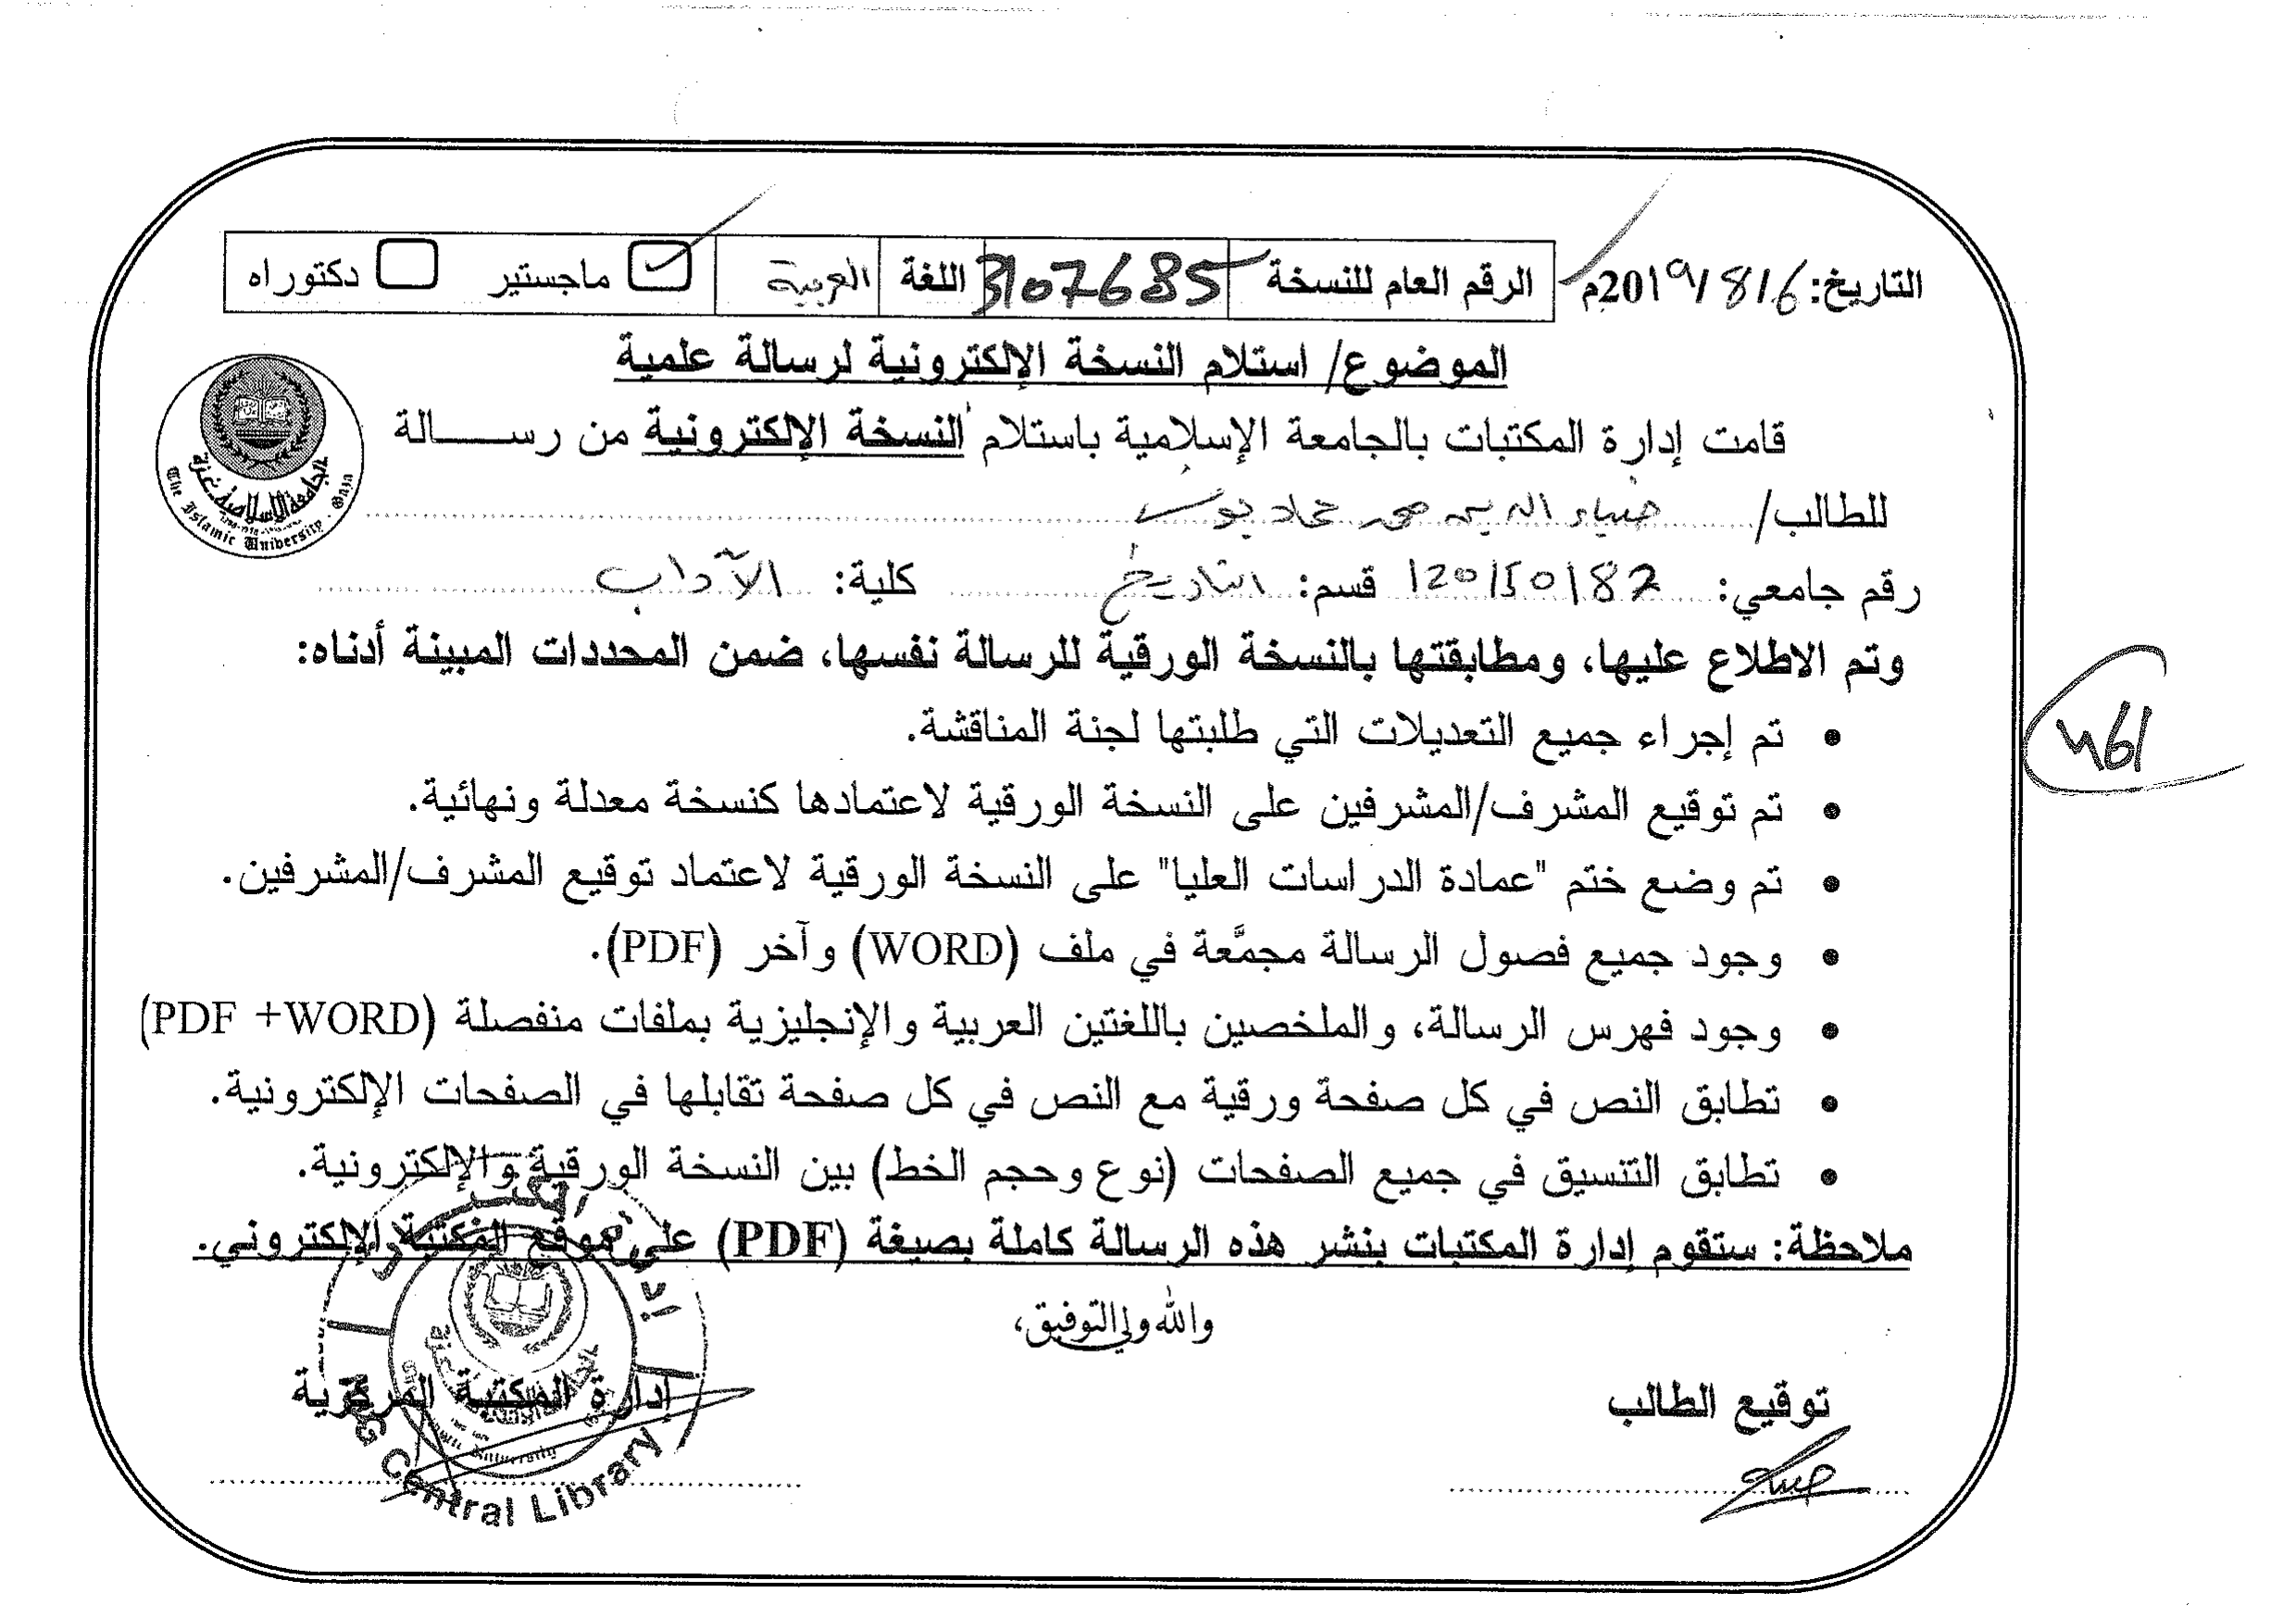 التاريخ: 2019/8/6م الرقم العام للنسخة 3107685 اللغة العربية ماجستير دكتوراه
الموضوع/ استلام النسخة الإلكترونية لرسالة علمية
قامت إدارة المكتبات بالجامعة الإسلامية باستلام النسخة الإلكترونية من رســـــالة
للطالب/ ضياء الدين محمد
رقم جامعي: 120150182 قسم: التاريخ كلية: الآداب
وتم الاطلاع عليها، ومطابقتها بالنسخة الورقية للرسالة نفسها، ضمن المحددات المبينة أدناه:
• تم إجراء جميع التعديلات التي طلبتها لجنة المناقشة.
• تم توقيع المشرف/المشرفين على النسخة الورقية لاعتمادها كنسخة معدلة ونهائية.
• تم وضع ختم "عمادة الدراسات العليا" على النسخة الورقية لاعتماد توقيع المشرف/المشرفين.
• وجود جميع فصول الرسالة مجمَّعة في ملف (WORD) وآخر (PDF).
• وجود فهرس الرسالة، والملخصين باللغتين العربية والإنجليزية بملفات منفصلة (PDF +WORD)
• تطابق النص في كل صفحة ورقية مع النص في كل صفحة تقابلها في الصفحات الإلكترونية.
• تطابق التنسيق في جميع الصفحات (نوع وحجم الخط) بين النسخة الورقية والإلكترونية.
ملاحظة: ستقوم إدارة المكتبات بنشر هذه الرسالة كاملة بصيغة (PDF) على موقع المكتبة الإلكتروني.
والله ولي التوفيق،
توقيع الطالب إدارة المكتبة المركزية
الجامعة الإسلامية غزة
The Islamic University - Gaza
Central Library